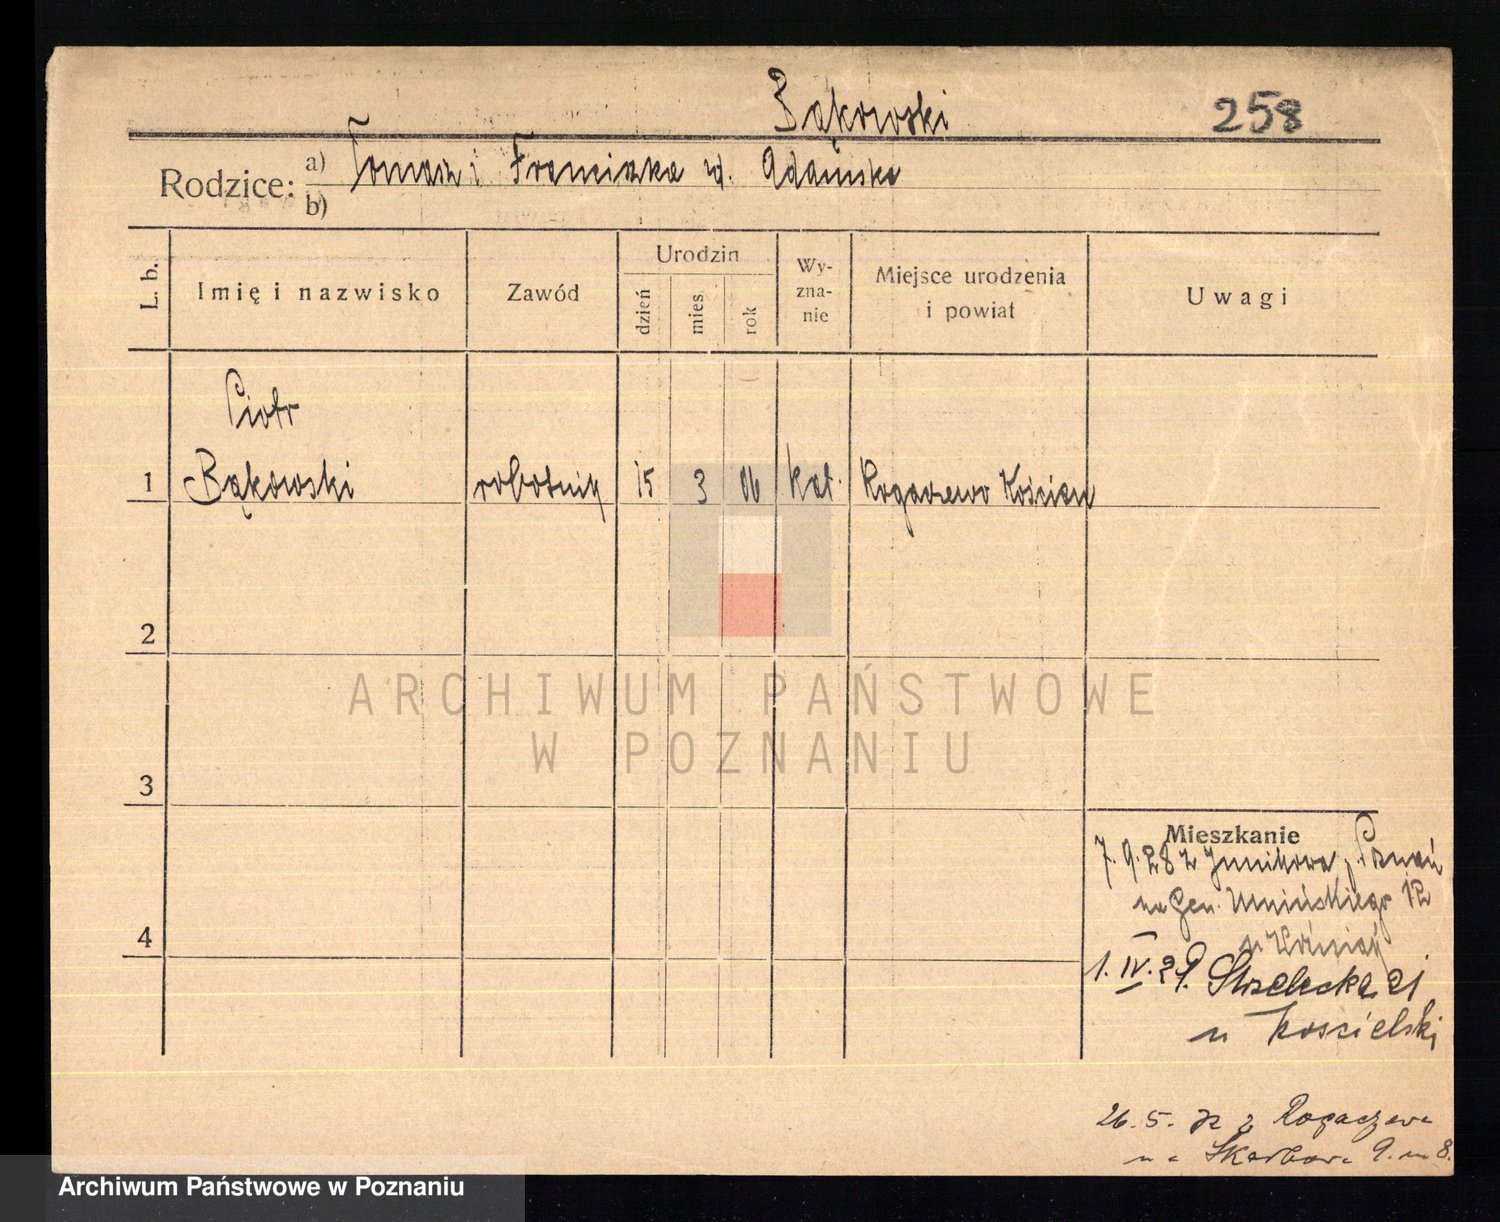 Bąkowski 258
Rodzice: a) Tomasz i Franciszka zd. Adamska
b)
L. b. Imię i nazwisko Zawód Urodzin dzień mies rok Wy-zna-nie Miejsce urodzenia i powiat Uwagi
Piotr
1 Bąkowski robotnik 15 3 06 kat. Rogaczewo Kościan
2
ARCHIWUM PAŃSTWOWE
W POZNANIU
3
Mieszkanie
7.9.28 z Junikowa, p. Poznań
na Gen. Umińskiego 12
4
1.IV.29. Strzelecka 21
u Kościelski
26.5. z Rogaczewa
na Skarbowa 9. m 8.
Archiwum Państwowe w Poznaniu